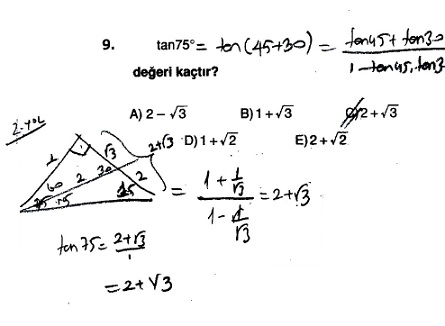 9. tan75° = tan(45+30) = tan45 + tan30 / 1 - tan45.tan3
değeri kaçtır?
A) 2 - √3 B) 1 + √3 C) 2 + √3
D) 1 + √2 E) 2 + √2
2. yol
1 √3 2+√3
60 2 30 2
15 15
= 1 + 1/√3 / 1 - 1/√3 = 2+√3
tan75 = 2+√3 / 1
= 2 + √3